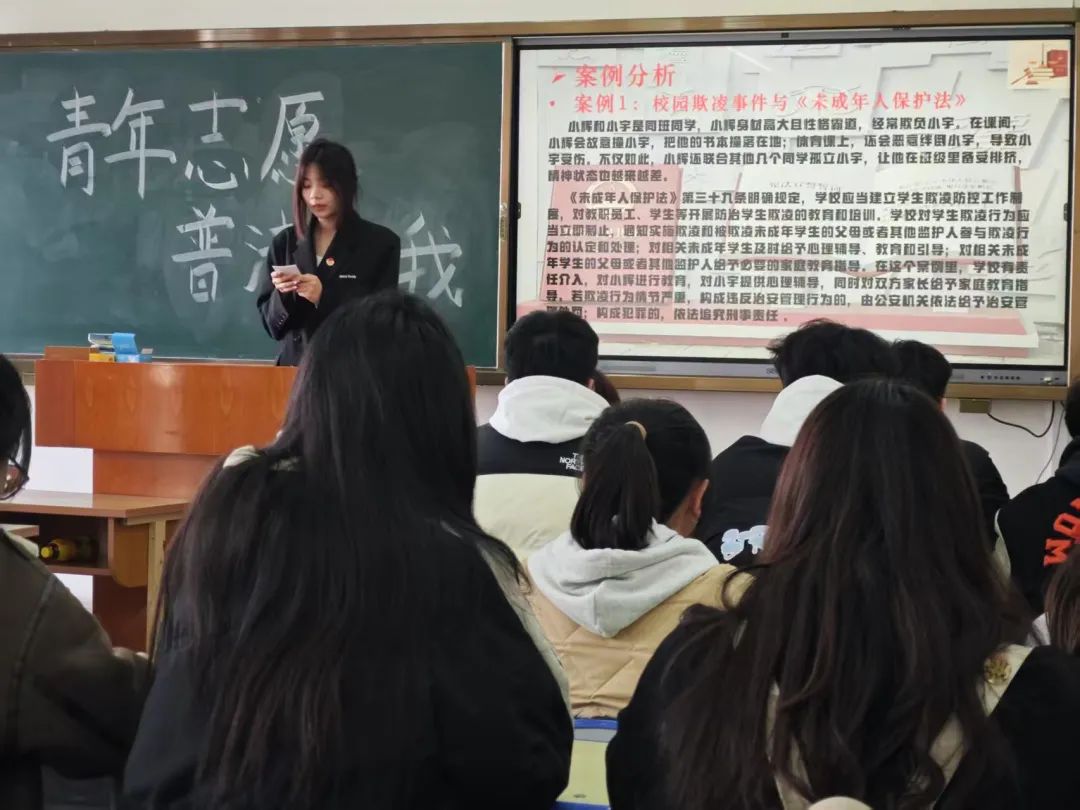 青年志愿
普法 我
案例分析
案例1：校园欺凌事件与《未成年人保护法》
小辉和小宇是同班同学，小辉身材高大且性格霸道，经常欺负小宇。在课间，
小辉会故意撞小宇，把他的书本撞落在地；体育课上，还会恶意绊倒小宇，导致小
宇受伤。不仅如此，小辉还联合其他几个同学孤立小宇，让他在班级里备受排挤，
精神状态也越来越差。
《未成年人保护法》第三十九条明确规定，学校应当建立学生欺凌防控工作制
度，对教职员工、学生等开展防治学生欺凌的教育和培训。学校对学生欺凌行为应
当立即制止，通知实施欺凌和被欺凌未成年学生的父母或者其他监护人参与欺凌行
为的认定和处理；对相关未成年学生及时给予心理辅导、教育和引导；对相关未成
年学生的父母或者其他监护人给予必要的家庭教育指导。在这个案例里，学校有责
任介入，对小辉进行教育，对小宇提供心理辅导，同时对双方家长给予家庭教育指
导。若欺凌行为情节严重，构成违反治安管理行为的，由公安机关依法给予治安管
理处罚；构成犯罪的，依法追究刑事责任。
THE
NORTH
FACE